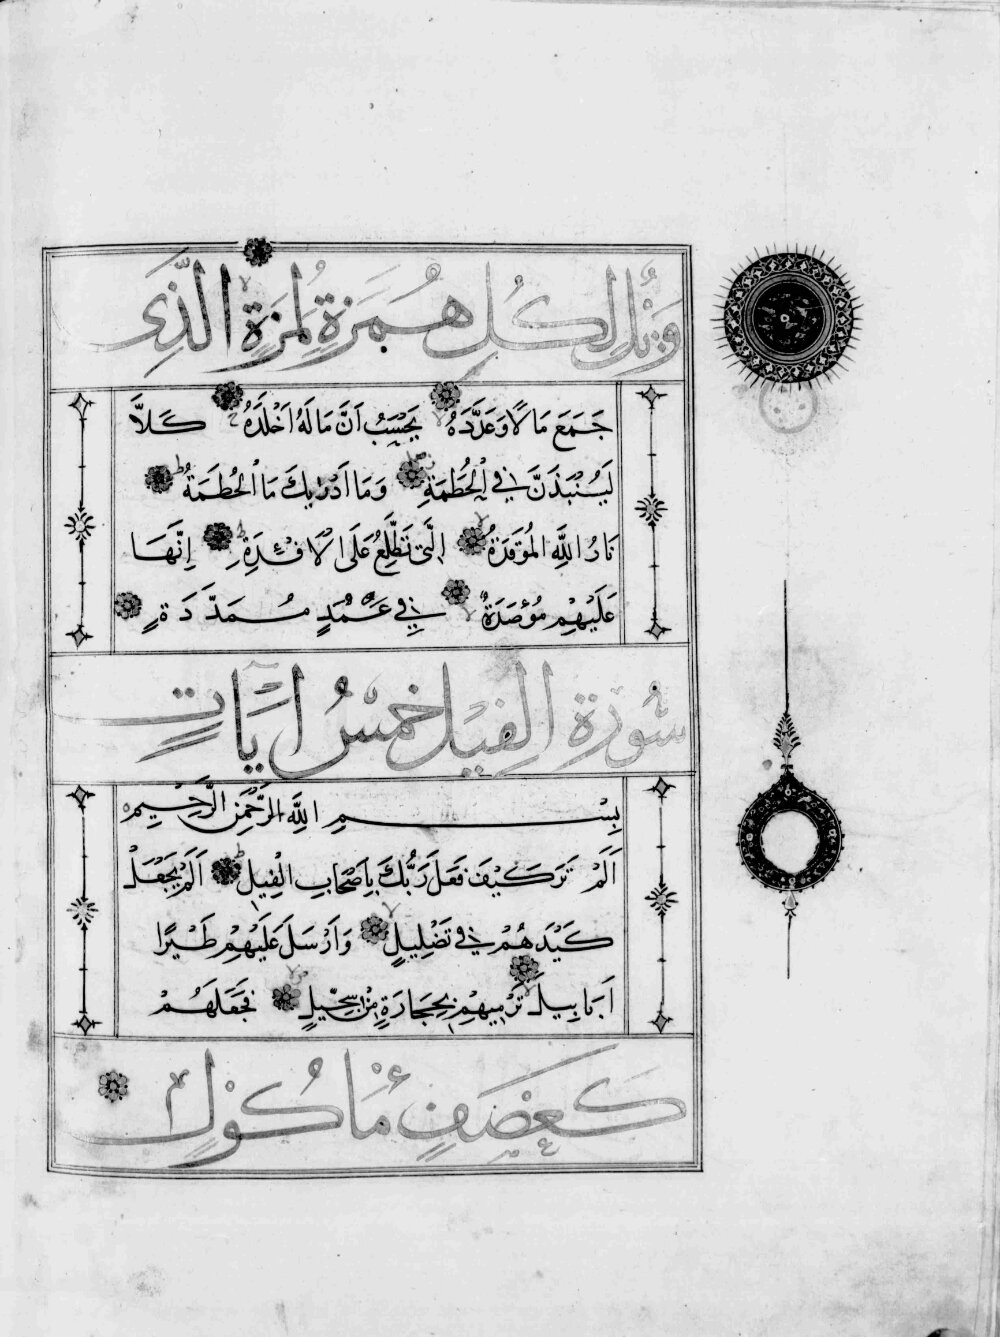 وَيْلٌ لِكُلِّ هُمَزَةٍ لُمَزَةٍ الَّذِى
جَمَعَ مَالًا وَعَدَّدَهُ يَحْسِبُ اَنَّ مَالَهُ اَخْلَدَهُ كَلَّا
لَيُنْبَذَنَّ فِي الْحُطَمَةِ وَمَا اَدْرٰيكَ مَا الْحُطَمَةُ
نَارُ اللَّهِ الْمُوقَدَةُ الَّتِى تَطَّلِعُ عَلَى الْاَفْئِدَةِ اِنَّهَا
عَلَيْهِمْ مُؤْصَدَةٌ فِي عَمَدٍ مُمَدَّدَةٍ
سُورَةُ الْفِيلِ خَمْسُ اٰيَاتٍ
بِسْمِ اللَّهِ الرَّحْمٰنِ الرَّحِيمِ
اَلَمْ تَرَ كَيْفَ فَعَلَ رَبُّكَ بِاَصْحَابِ الْفِيلِ اَلَمْ يَجْعَلْ
كَيْدَهُمْ فِي تَضْلِيلٍ وَاَرْسَلَ عَلَيْهِمْ طَيْرًا
اَبَابِيلَ تَرْمِيهِمْ بِحِجَارَةٍ مِنْ سِجِّيلٍ فَجَعَلَهُمْ
كَعَصْفٍ مَأْكُولٍ